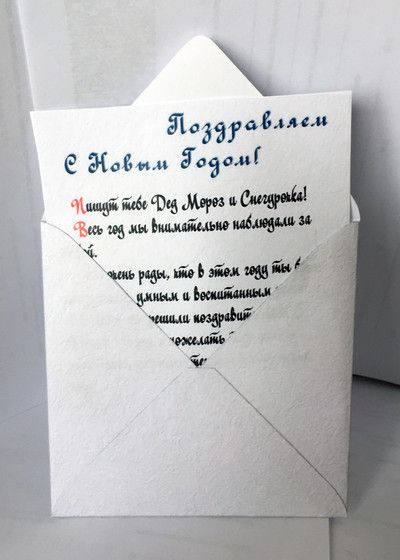 Поздравляем
С Новым Годом!
Пишут тебе Дед Мороз и Снегурочка!
Весь год мы внимательно наблюдали за
рады, что в этом году ты
и воспитанным
поздравит